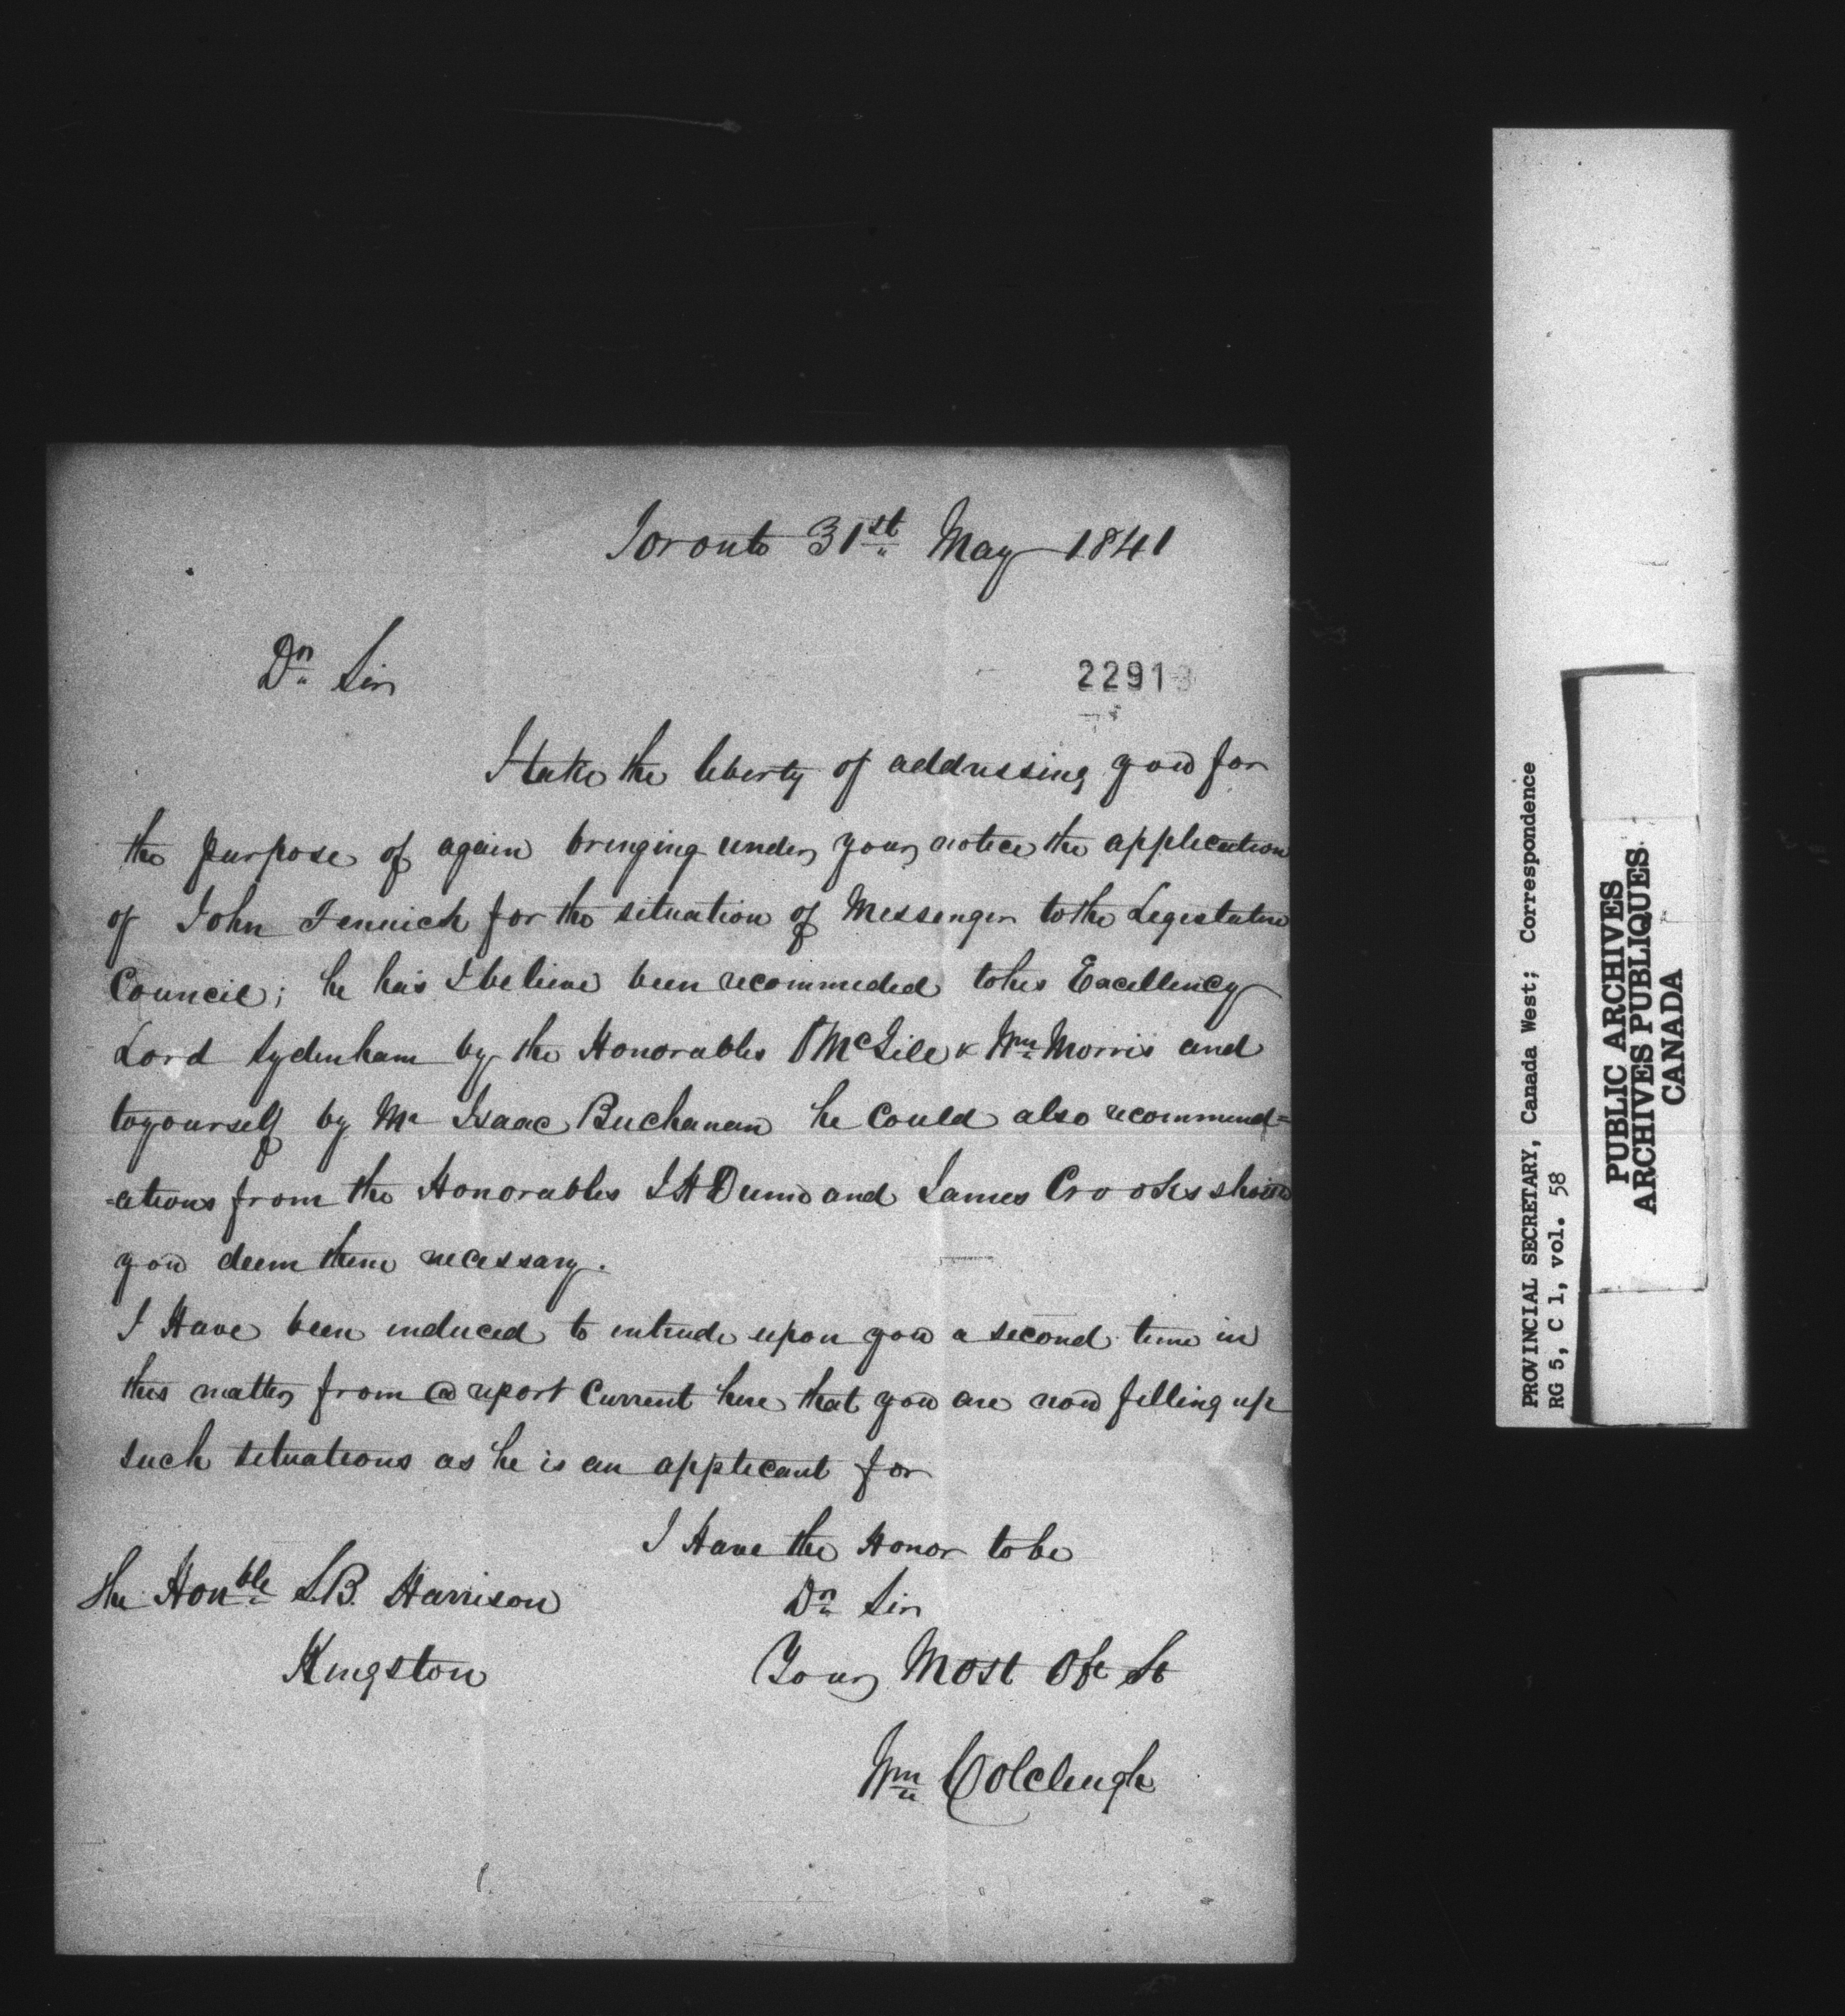 Toronto 31st May 1841
Dr Sir
22913
I take the liberty of addressing you for
the purpose of again bringing under your notice the application
of John Fennick for the situation of Messenger to the Legislative
Council; he has I believe been recommeded to his Excellency
Lord Sydenham by the Honorables P McGill & Wm Morris and
to yourself by Mr Isaac Buchanan he could also recommend=
=ations from the Honorables J H Dunn and James Crooks should
you deem them necessary.
I Have been induced to intrude upon you a second time in
this matter from a report current here that you are now filling up
such situations as he is an applicant for
I Have the Honor to be
Dr Sir
Your Most Obt St
Wm Colclengh
The Honble S.B. Harrison
Kingston
PROVINCIAL SECRETARY, Canada West; Correspondence
RG 5, C 1, vol. 58
PUBLIC ARCHIVES
ARCHIVES PUBLIQUES
CANADA